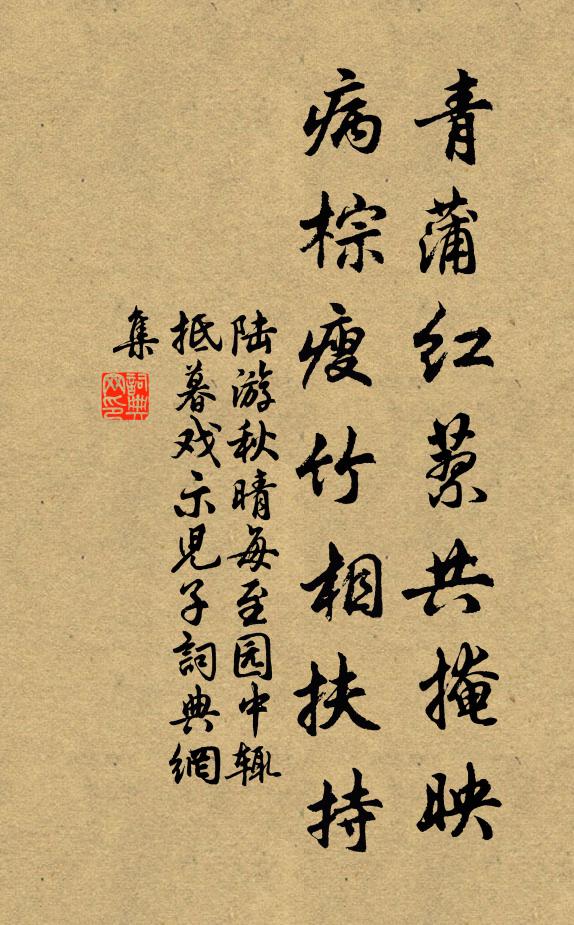 青蒲红蓼共掩映
病棕瘦竹相扶持
陆游秋晴每至园中辄
抵暮戏示児子詞典網
集
詞典
网印